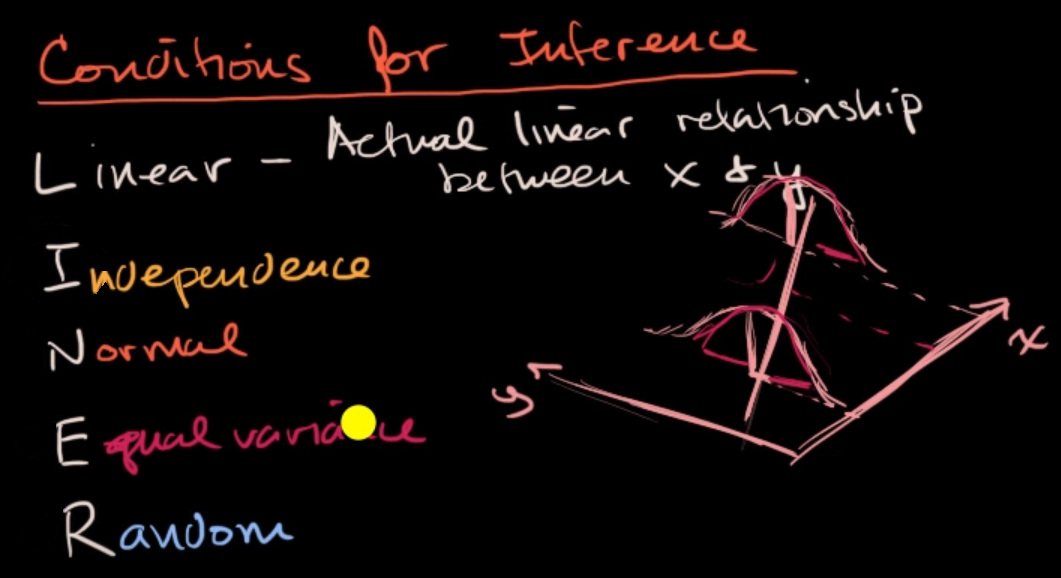 Conditions for Inference
Linear – Actual linear relationship
between x & y
Independence
Normal
Equal variance
Random
y
x